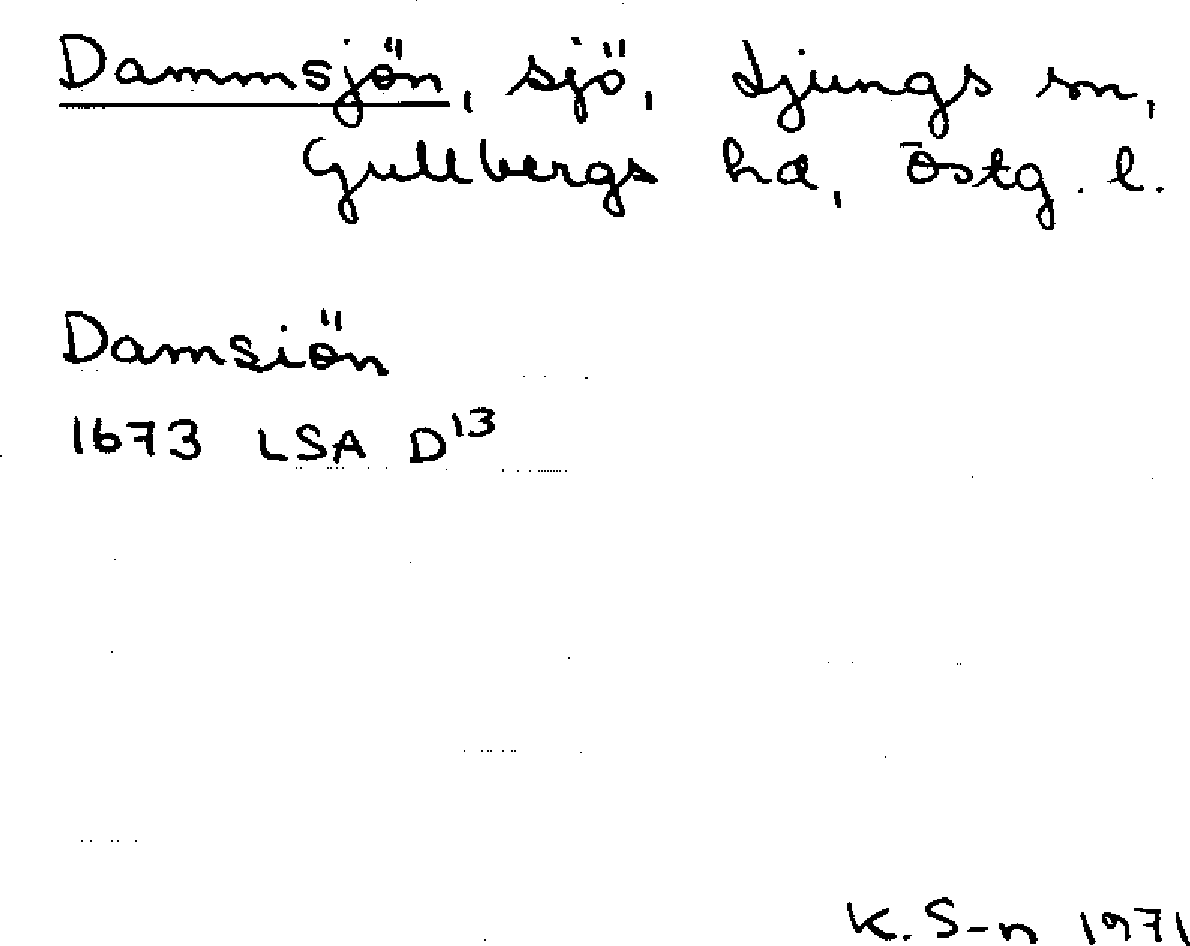 Dammsjön, sjö, Ljungs sn,
Gullbergs hd, Östg. l.
Damsiön
1673 LSA D13
K. S-n 1971